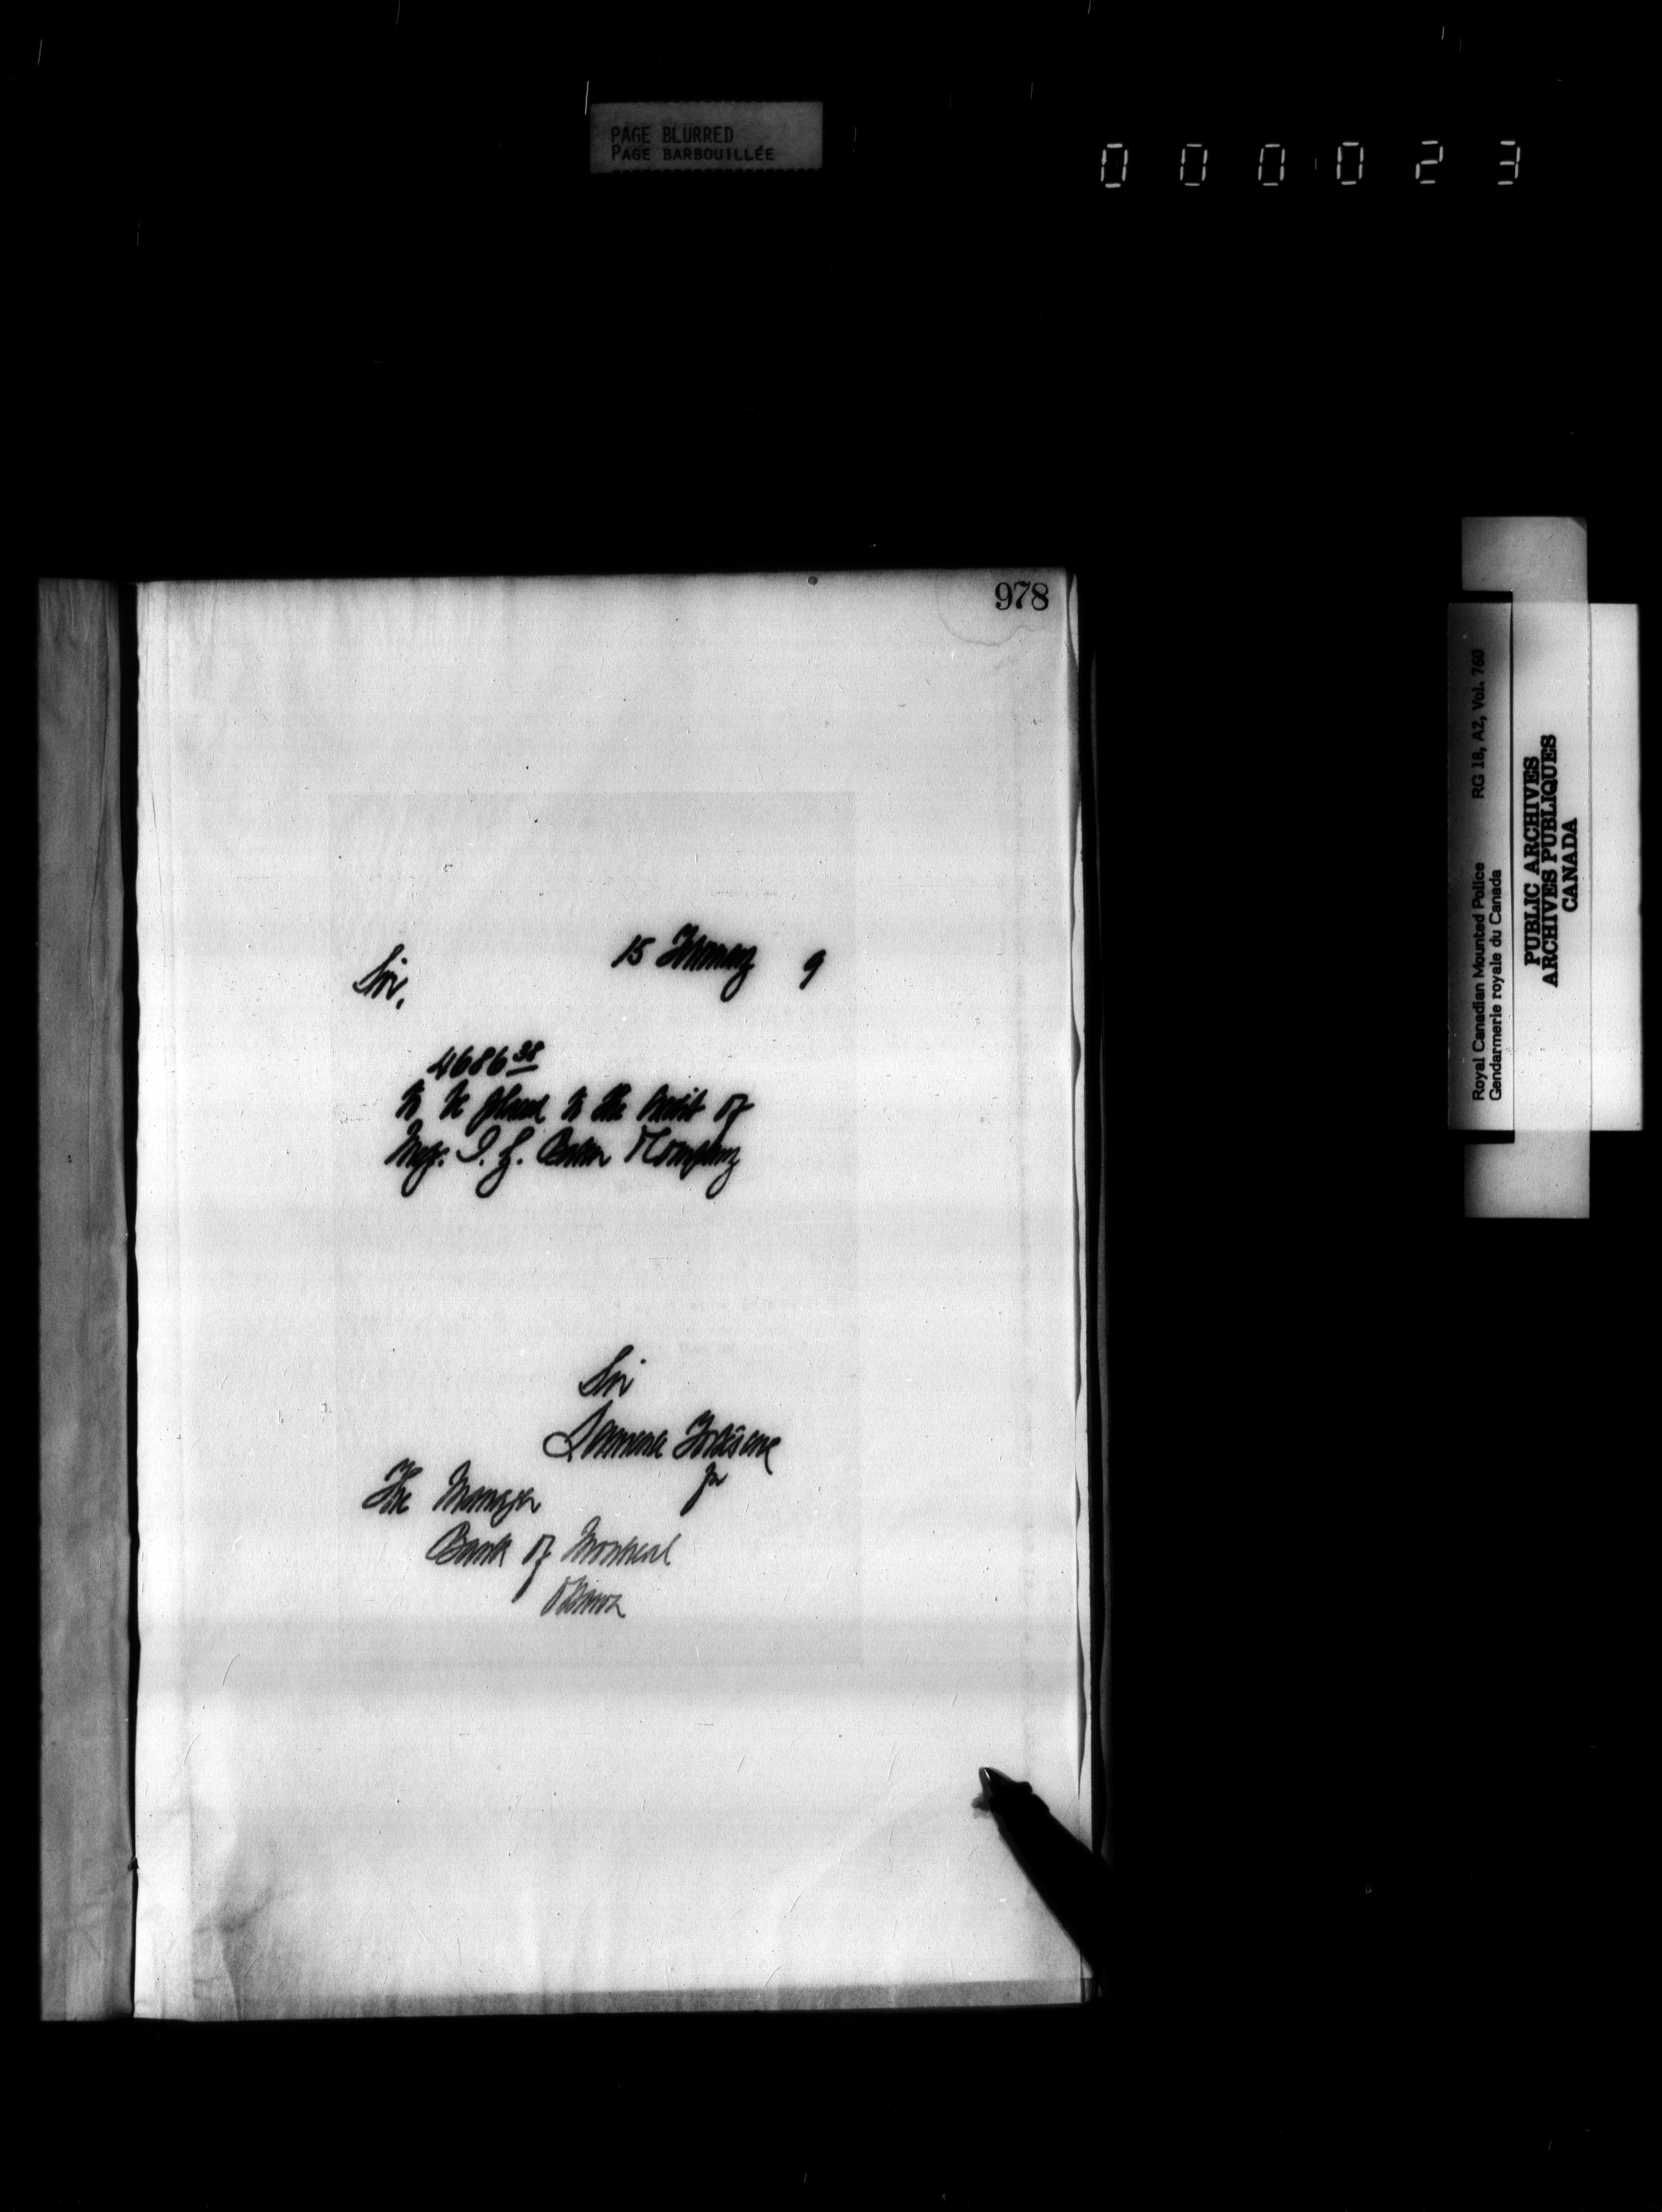 PAGE BLURRED
PAGE BARBOUILLÉE
000023
978
15 February 9
Sir,
4686 38
to be placed to the credit of
Messrs. I. G. Baker & Company
Sir
Laurence Fortescue
The Manager
Bank of Montreal
Ottawa
Royal Canadian Mounted Police RG 18, A2, Vol. 760
Gendarmerie royale du Canada
PUBLIC ARCHIVES
ARCHIVES PUBLIQUES
CANADA